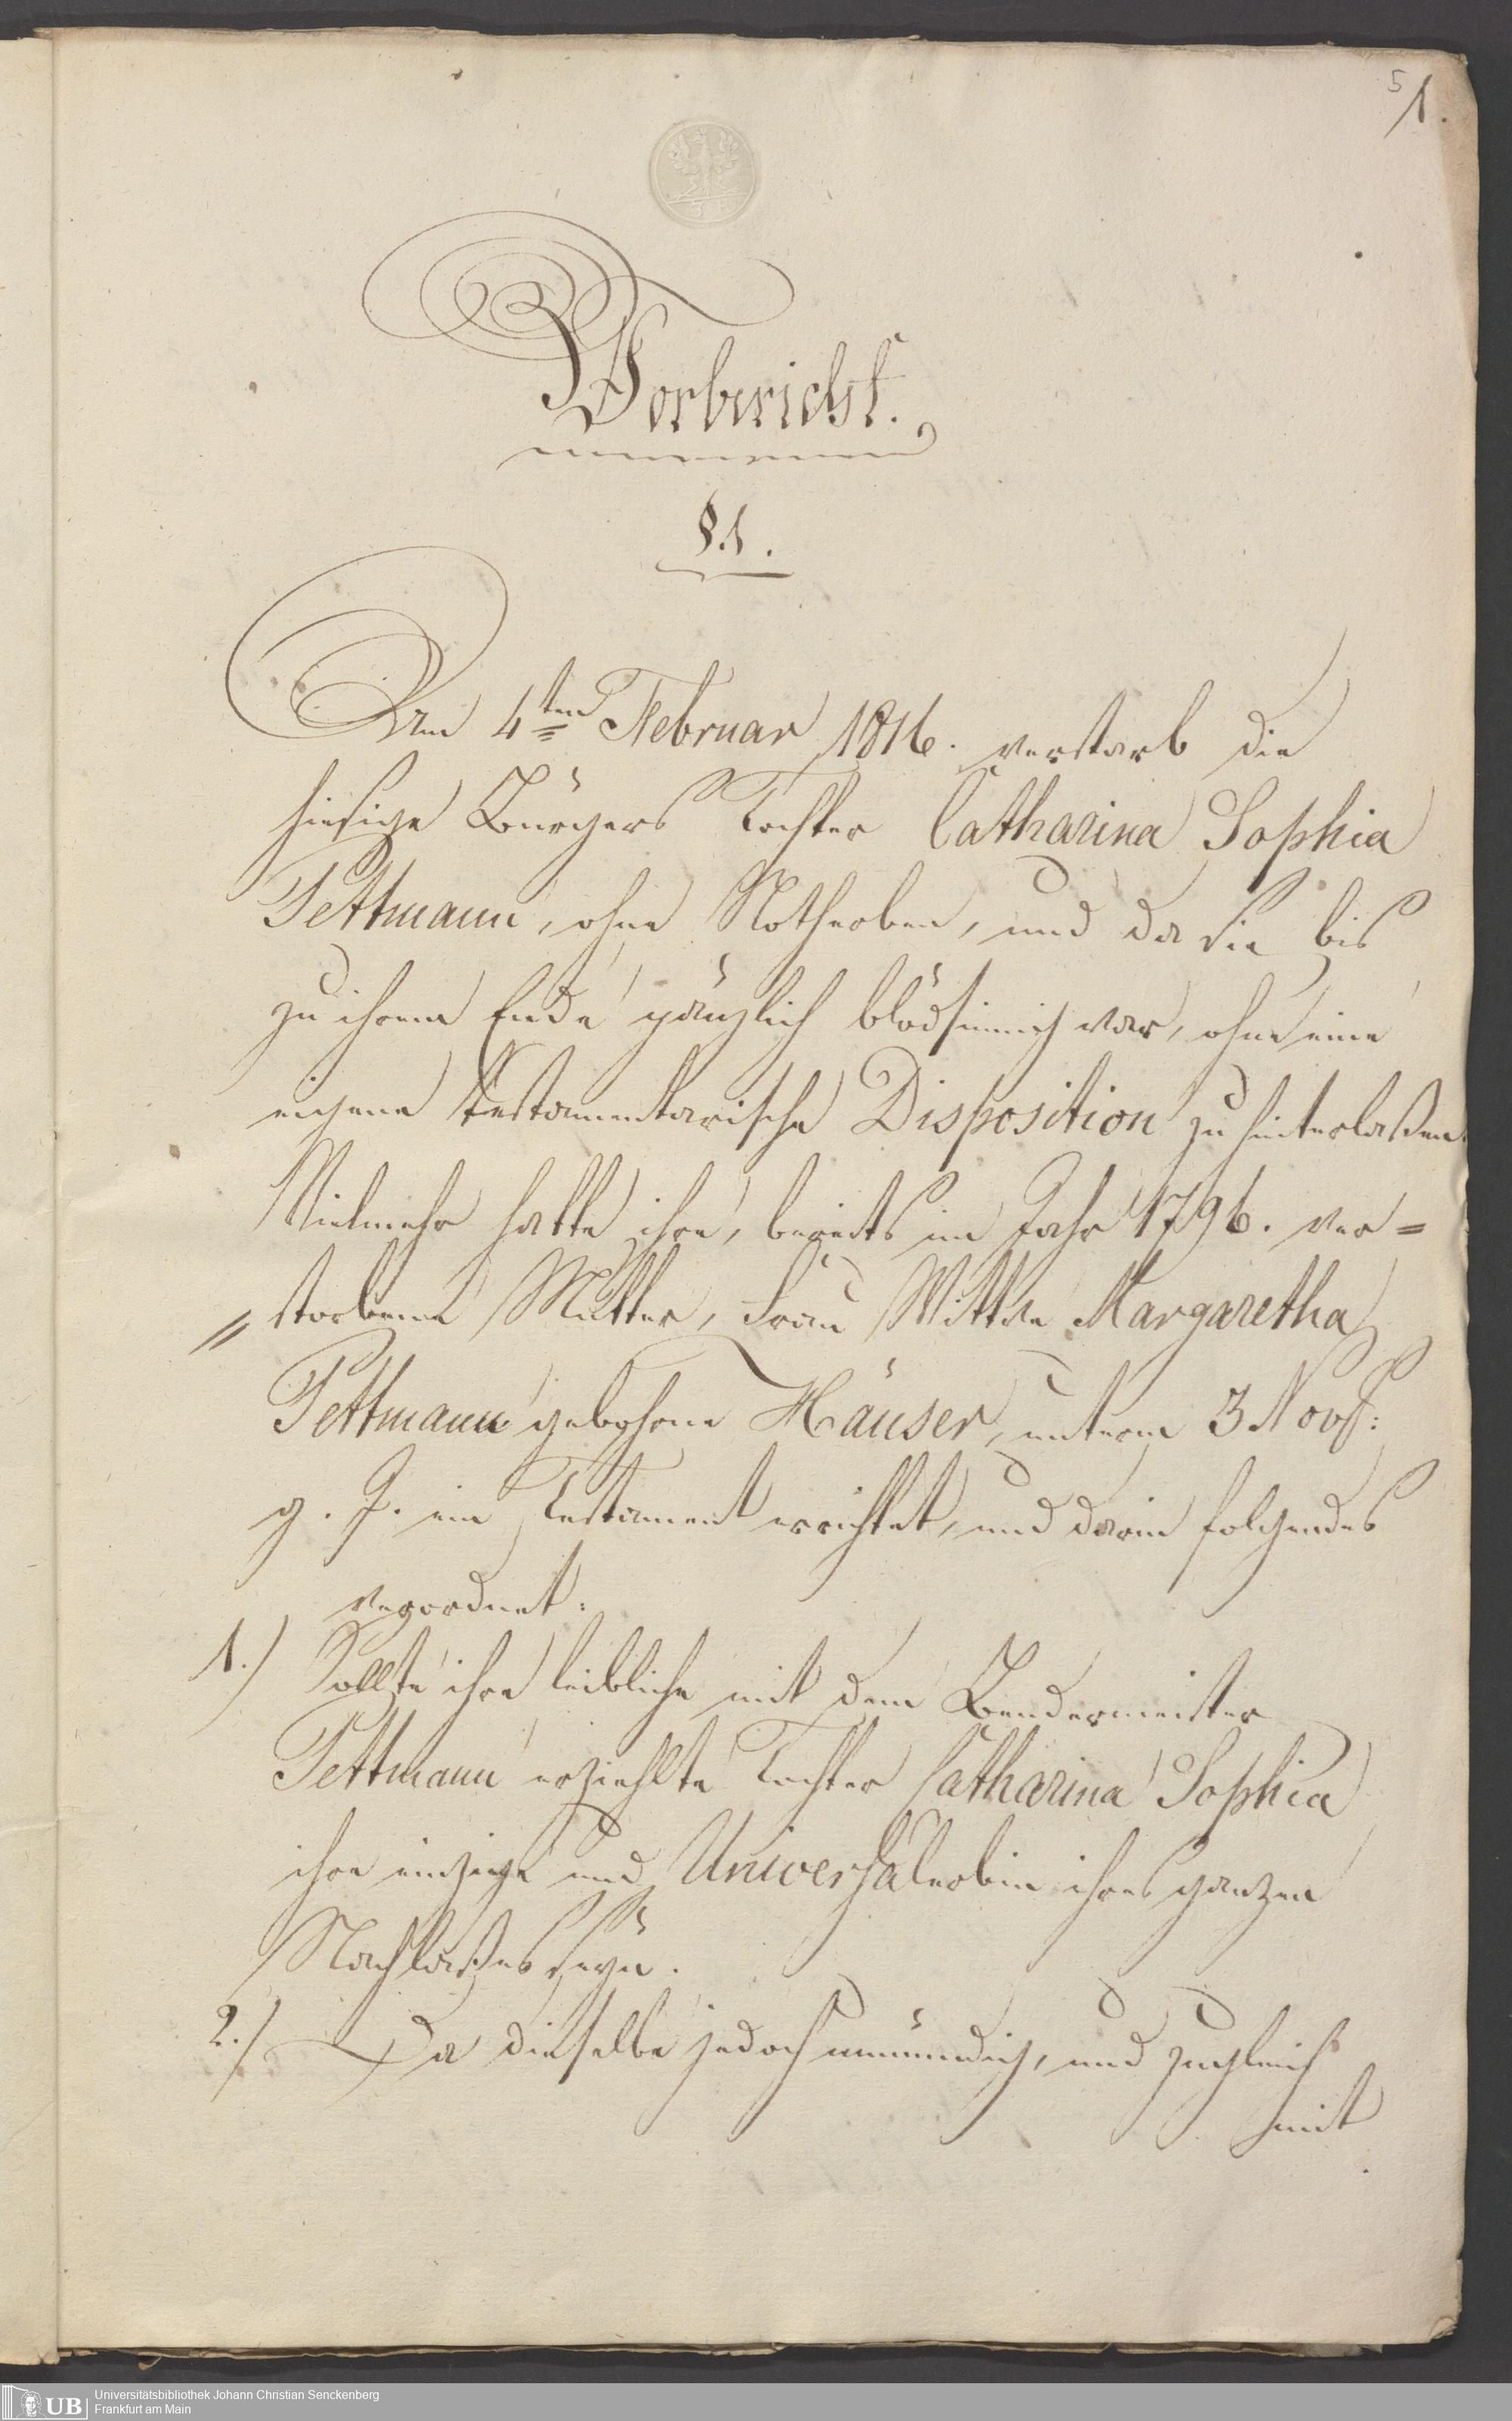 5
1.
Vorbericht.
§.1.
Am 4ten Februar 1816. verstarb die
hiesige Bürgers Tochter Catharina Sophia
Tettmann, ohne Notherben, und da sie bis
zu ihrem Ende gänzlich blödsinnig war, ohne eine
eigene testamentarische Disposition zu hinterlaßen.
Vielmehr hatte ihre, bereits im Jahr 1796. ver=
„storbene Mutter, Frau Wittwe Margaretha
Tettmann gebohrne Häuser, unterm 3 Novb:
g. J. ein Testament errichtet, und darin folgendes
verordnet:
1.) Sollte ihre leibliche mit dem Bendermeister
Tettmann erziehlte Tochter Catharina Sophia
ihre einzige und Universalerbin ihres ganzen
Nachlaßes seyn.
2.) Da dieselbe jedoch unmündig, und zugleich
mit
UB
Universitätsbibliothek Johann Christian Senckenberg
Frankfurt am Main